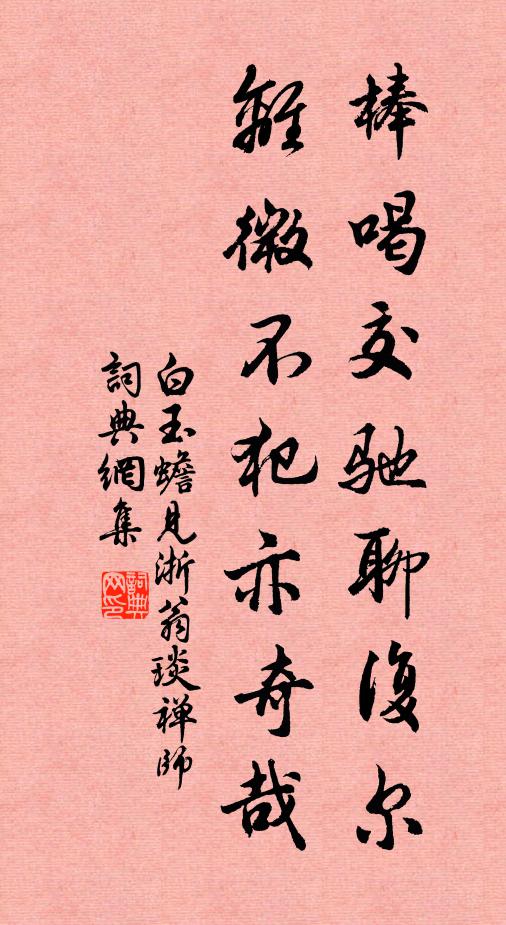 棒喝交驰聊復尔
離微不犯亦奇哉
白玉蟾見浙翁琰禅師
詞典網集
詞典网印